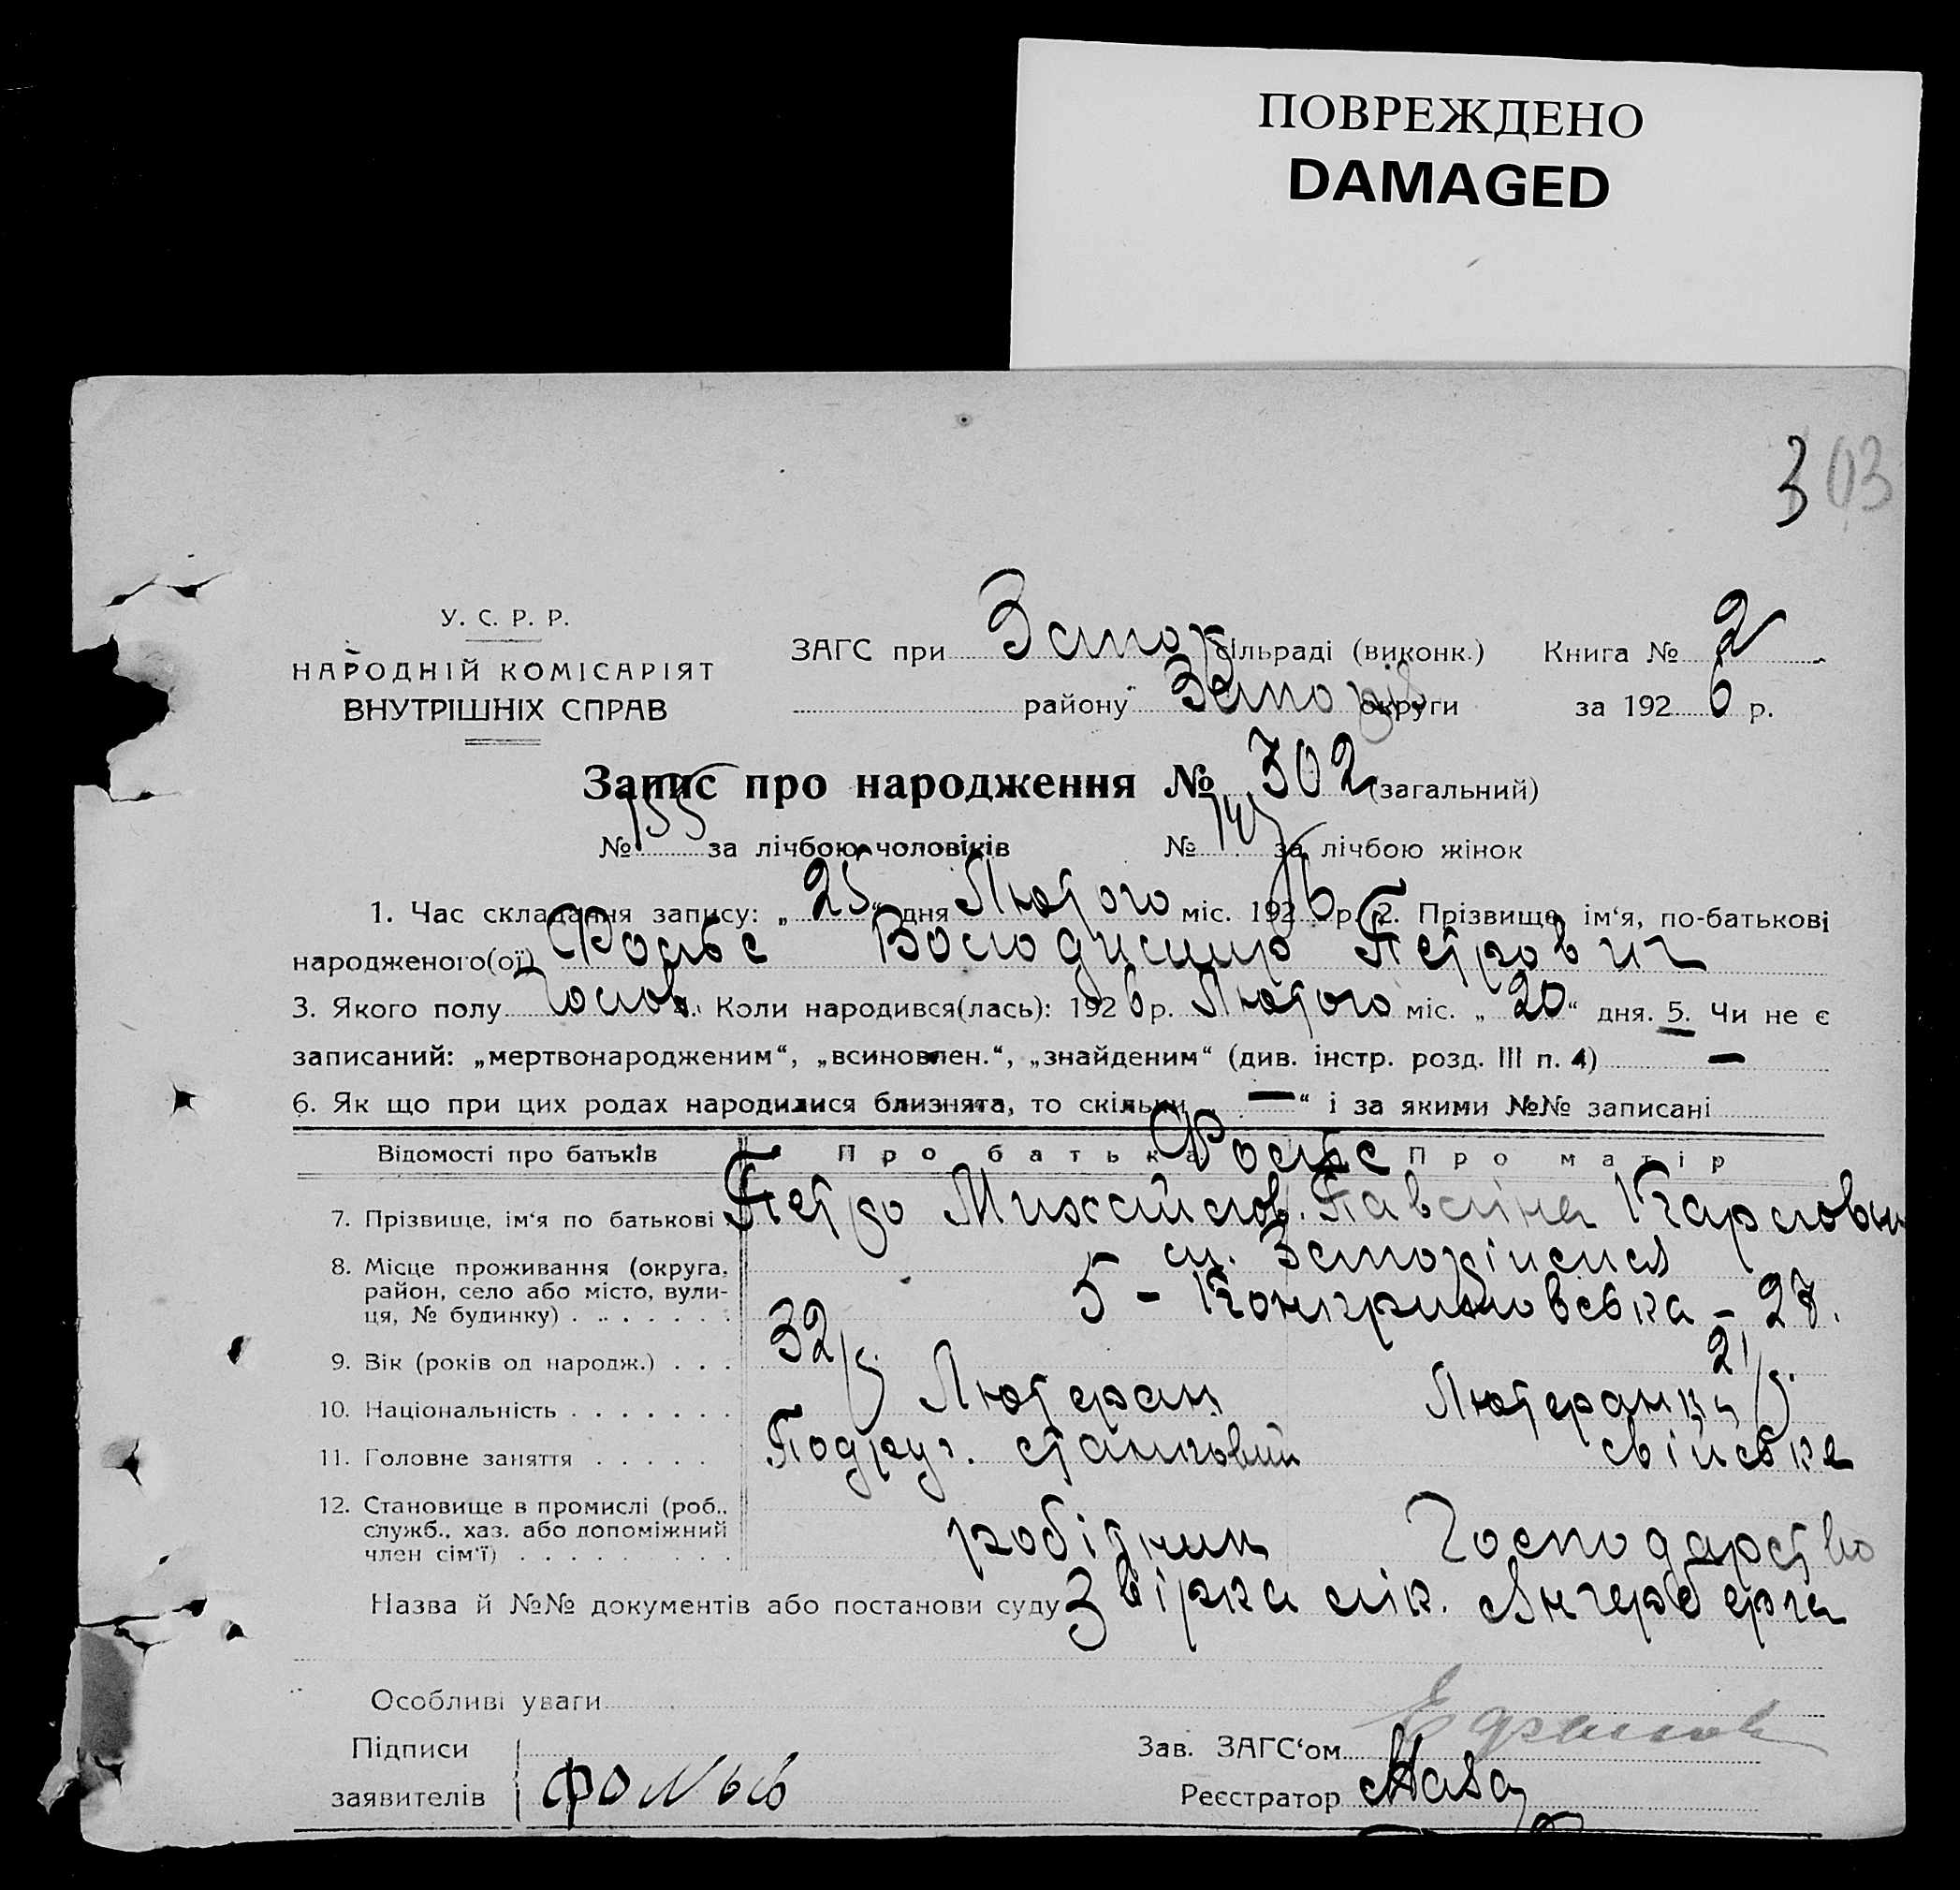 ПОВРЕЖДЕНО
DAMAGED
3 03
У. С. Р. Р.
НАРОДНІЙ КОМІСАРІЯТ
ВНУТРІШНІХ СПРАВ
ЗАГС при Запор сільраді (виконк.) Книга № 2
району Запоріз округи за 1926 р.
Запис про народження № 302 (загальний)
№ 155 за лічбою чоловіків № за лічбою жінок
1. Час складання запису: „25“ дня Лютого міс. 1926 р. 2. Прізвище, ім‘я, по-батькові
народженого(ої) Фольс Володимир Петрович
3. Якого полу Чолов. Коли народився(лась): 1926 р. Лютого міс. „20“ дня. 5. Чи не є
записаний: „мертвонародженим“, „всиновлен.“, „знайденим“ (див. інстр. розд. III п. 4) —
6. Як що при цих родах народилися близнята, то скільки „—“ і за якими №№ записані
Відомості про батьків Про батька Про матір
Фольс
7. Прізвище, ім‘я по батькові Петро Михайлов. Павліна Карловн
8. Місце проживання (округа, район, село або місто, вулиця, № будинку) м. Запоріжжя
5 - - 27.
9. Вік (років од народж.) 32 р. 21 р.
10. Національність Лютеран Лютеранка
11. Головне заняття Подруч. свійське
12. Становище в промислі (роб., служб., хаз. або допоміжний член сім‘ї) робітник Господарство
Назва й №№ документів або постанови суду Звірка лік.
Особливі уваги
Підписи Зав. ЗАГС‘ом
заявителів Реєстратор